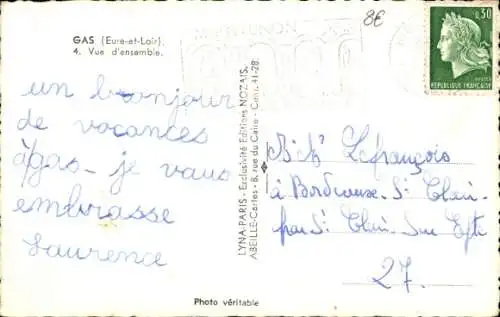 GAS (Eure-et-Loir).
4. Vue d'ensemble.
8€
MAINTENON
0,30
REPUBLIQUE FRANÇAISE
un bonjour
de vacances
à gas - je vous
embrasse
Laurence
LYNA-PARIS - Exclusivité Editions NOZAIS.
ABEILLE-Cartes - 8, rue du Caire - Cen. 11-28.
Lefrançois
à Bordeaux St Clair
par St Clair sur Epte
27.
Photo véritable